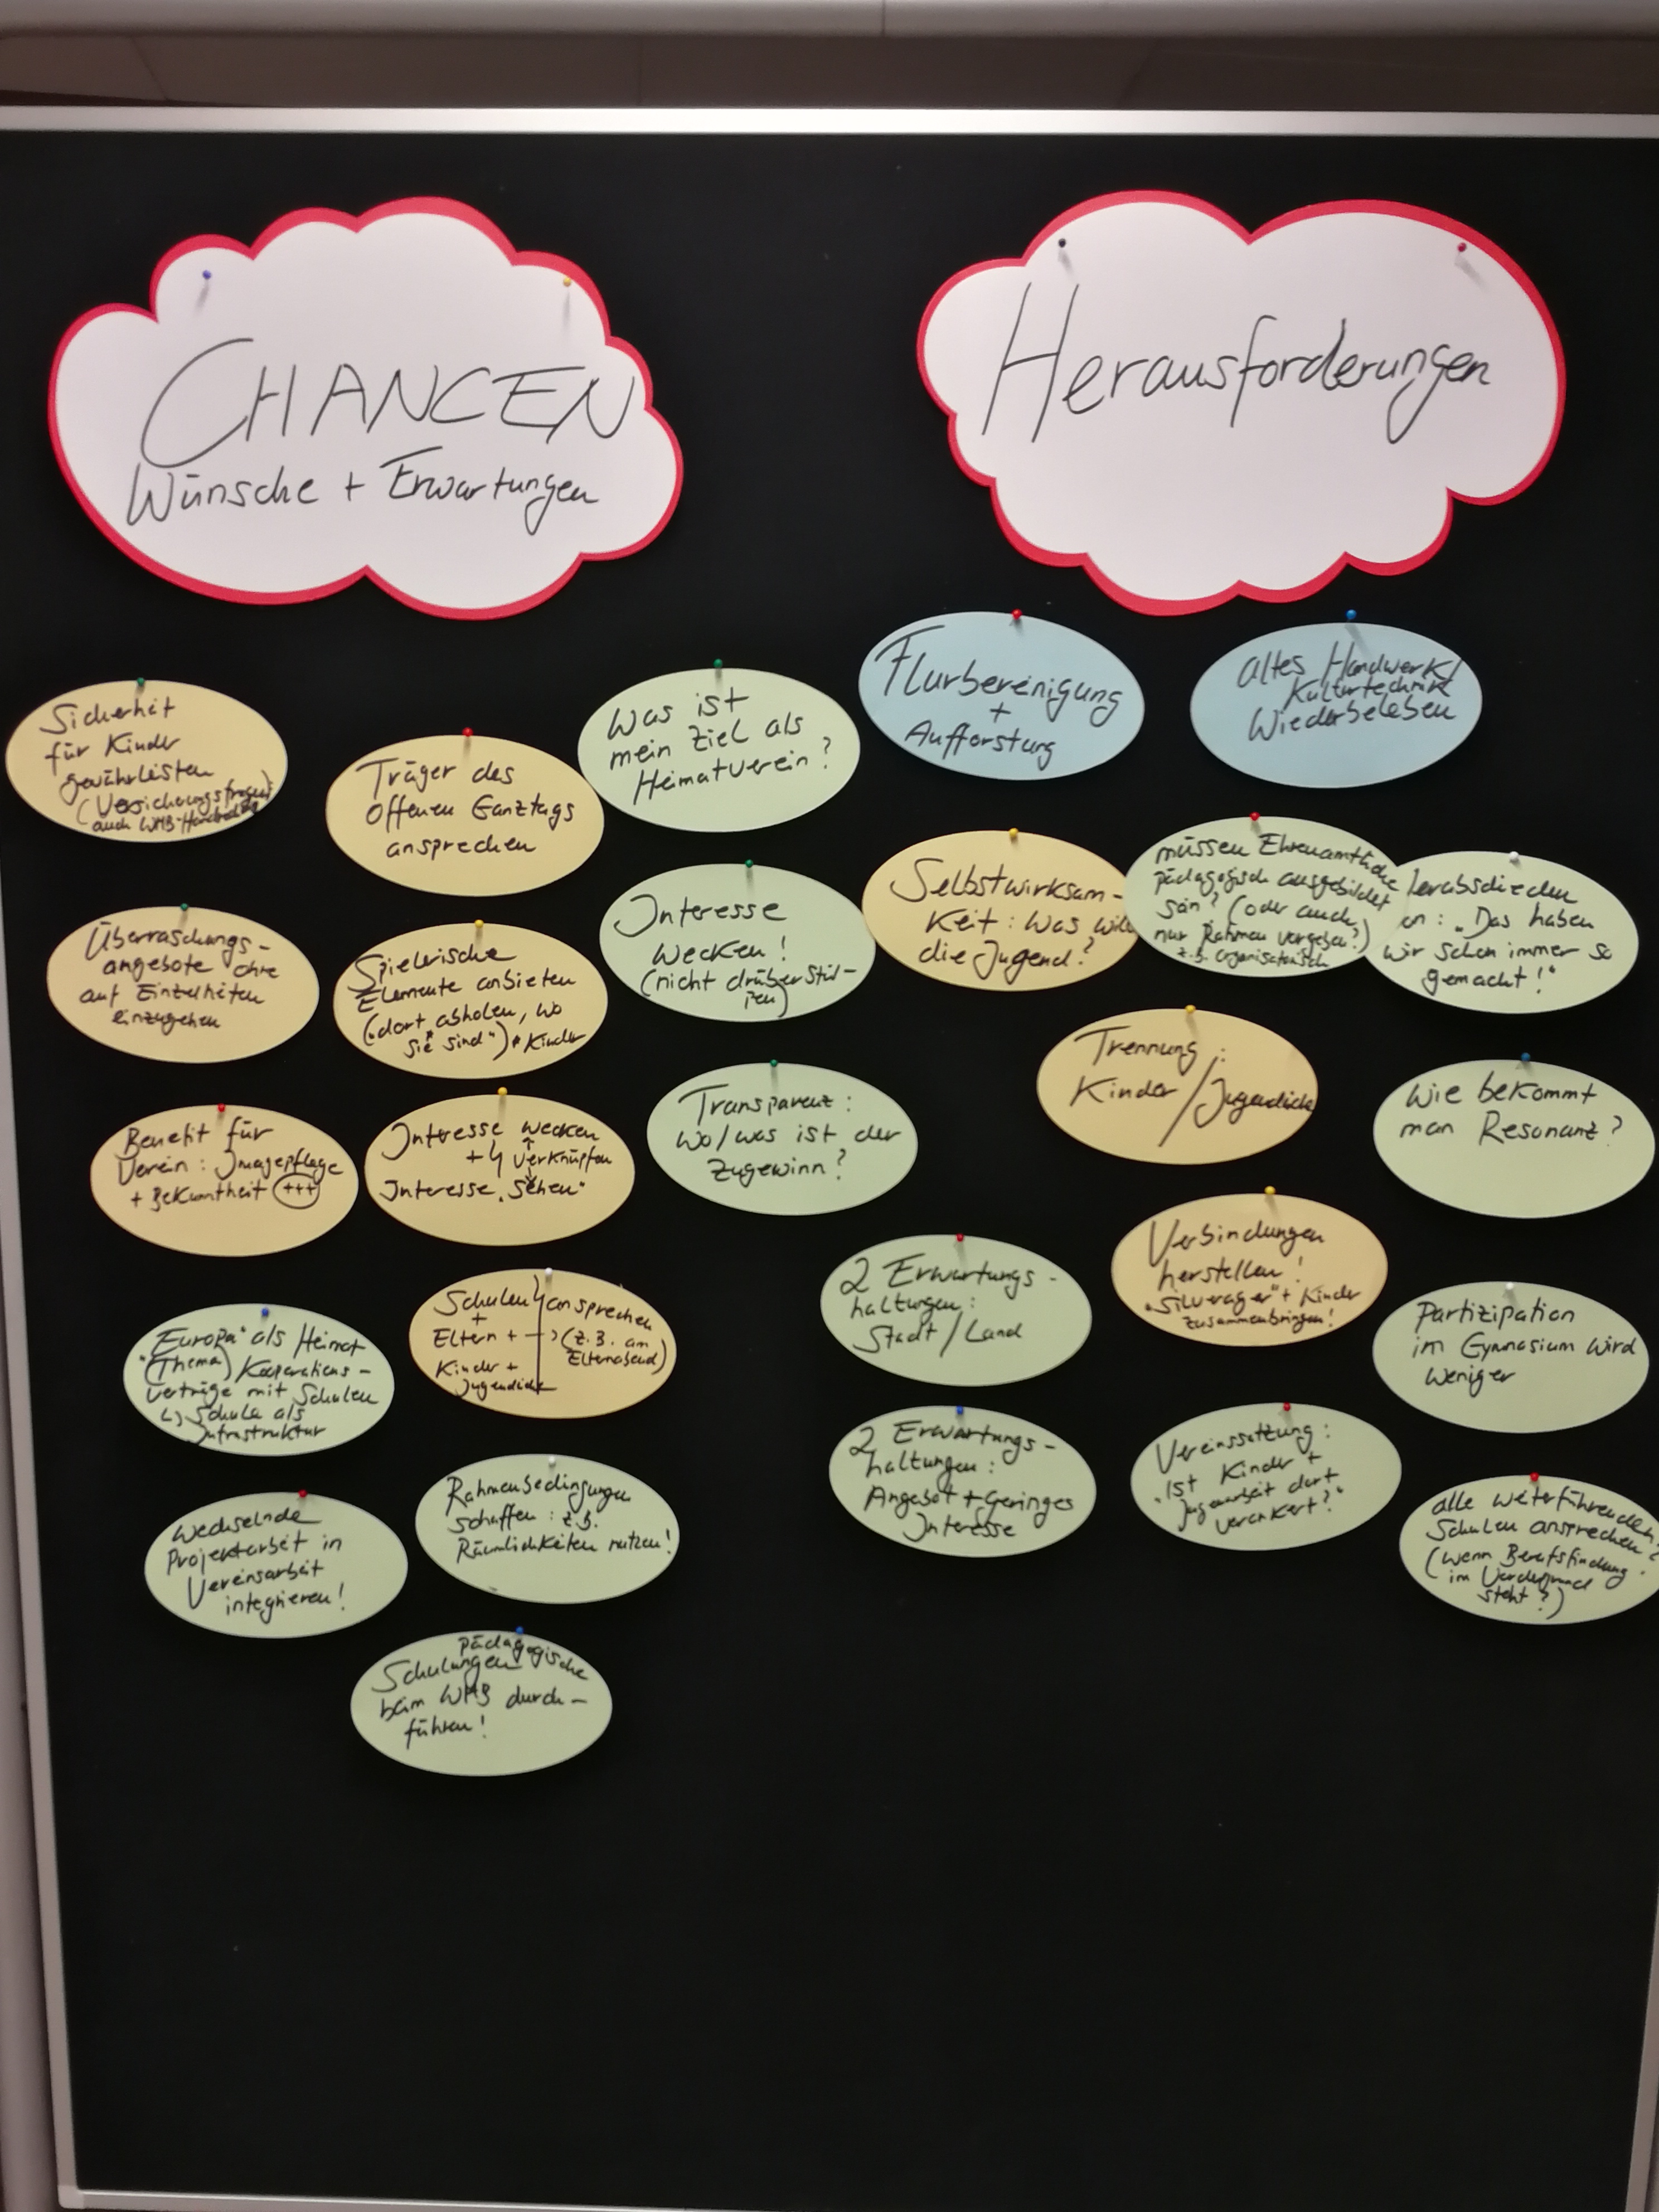 CHANCEN
Wünsche + Erwartungen
Sicherheit
für Kinder
gewährleisten
(Versicherungsfragen)
auch WHB-
Träger des
offenen Ganztags
ansprechen
Was ist
mein Ziel als
Heimatverein?
Überraschungs-
angebote ohne
auf Einzelheiten
einzugehen
Spielerische
Elemente anbieten
("dort abholen, wo
sie sind") * Kinder
Interesse
wecken!
(nicht drüber stül-
pen)
Benefit für
Verein: Imagepflege
+ Bekanntheit +++
Interesse wecken
+ verknüpfen
Interesse "sehen"
Transparenz:
Wo/was ist der
Zugewinn?
"Europa" als Heimat
(Thema) Kooperations-
verträge mit Schulen
Schule als
Infrastruktur
Schulen ansprechen
+
Eltern + (z.B. am
Elternabend)
Kinder +
Jugendliche
Wechselnde
Projektarbeit in
Vereinsarbeit
integrieren!
Rahmenbedingungen
schaffen: z.B.
Räumlichkeiten nutzen!
pädagogische
Schulungen
beim WHB durch-
führen!
Herausforderungen
Flurbereinigung
+
Aufforstung
altes Handwerk/
Kulturtechnik
Wiederbeleben
Selbstwirksam-
keit: Was will
die Jugend?
müssen Ehrenamtliche
pädagogisch ausgebildet
sein? (oder auch
nur Rahmen vorgeben?)
z.B. organisatorisch
"Das haben
wir schon immer so
gemacht!"
Trennung:
Kinder/Jugendliche
Wie bekommt
man Resonanz?
Verbindungen
herstellen!
"Silverager" + Kinder
zusammenbringen!
2 Erwartungs-
haltungen:
Stadt/Land
Partizipation
im Gymnasium wird
weniger
2 Erwartungs-
haltungen:
Angebot + geringes
Interesse
Vereinssatzung:
"Ist Kinder +
Jugendarbeit dort
verankert?"
alle weiterführenden
Schulen ansprechen?
(wenn Berufsfindung
im Vordergrund
steht?)